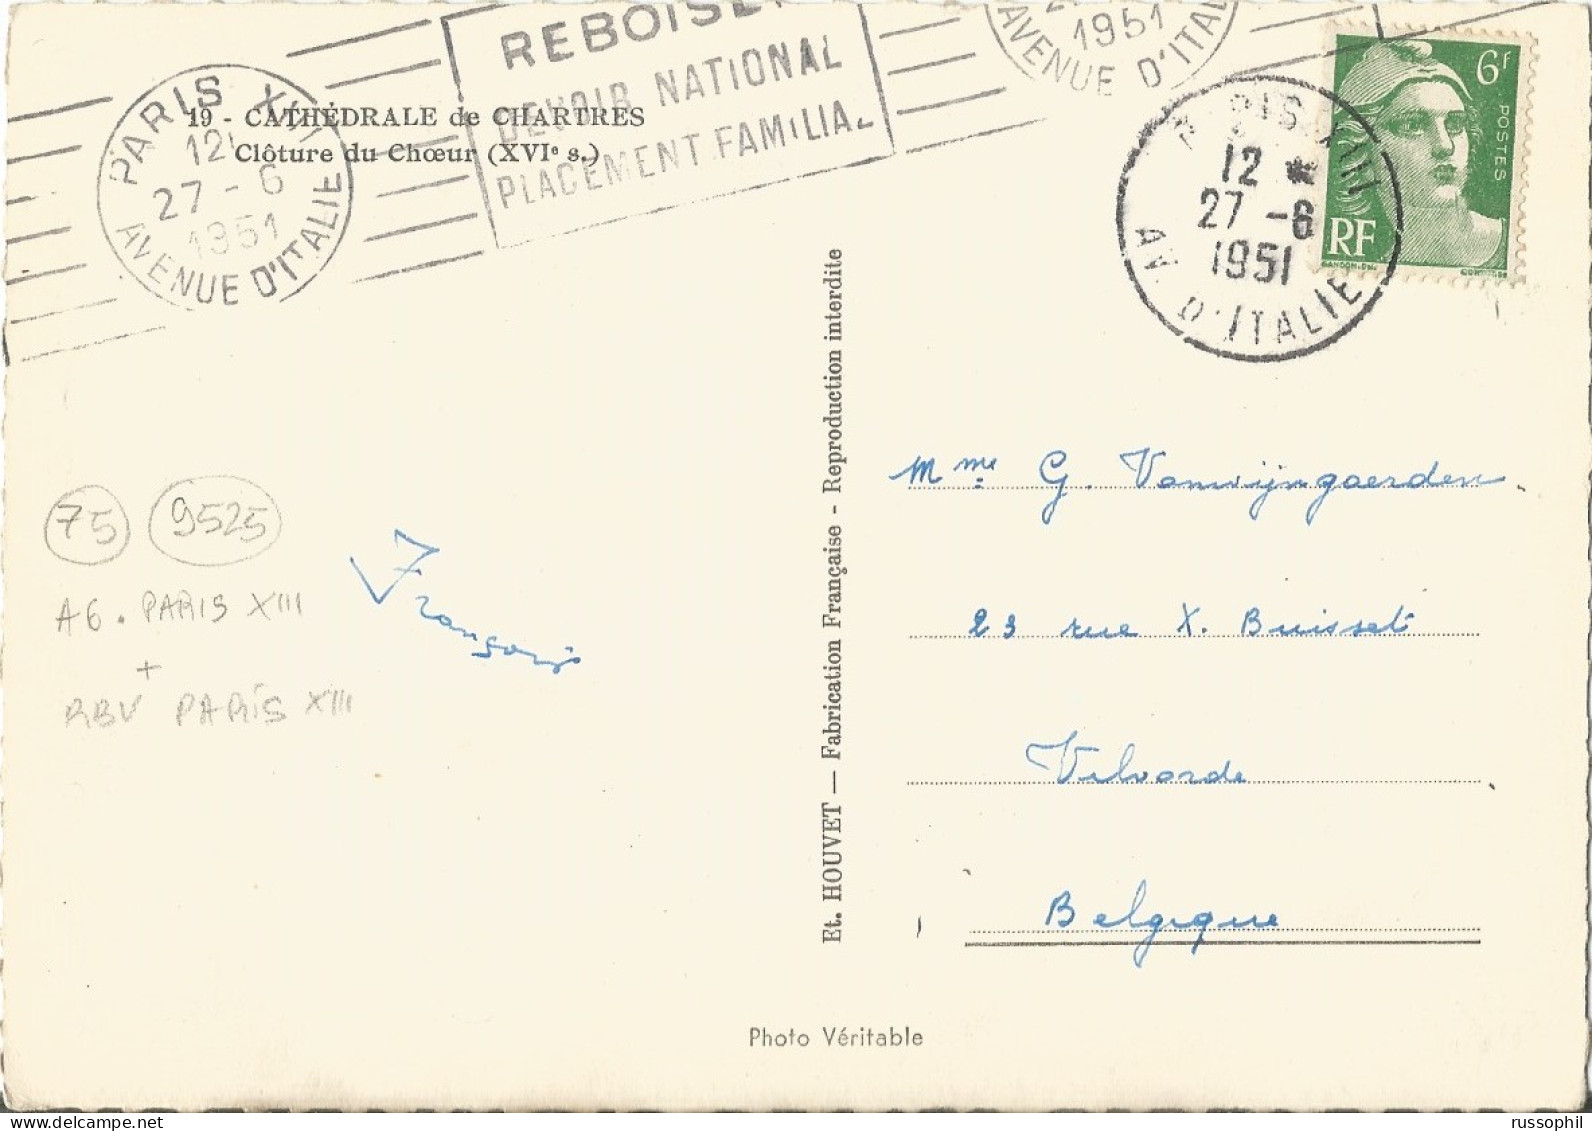 REBOISER
DEVOIR NATIONAL
PLACEMENT FAMILIAL
PARIS XIII
12
27 - 6
1951
AVENUE D'ITALIE
1951
AVENUE D'ITAL
19 - CATHÉDRALE de CHARTRES
Clôture du Chœur (XVIe s.)
PARIS XIII
12 *
27 -6
1951
AV. D'ITALIE
6f
POSTES
RF
GANDON
75 9525
A6. PARIS XIII
+
RBV PARIS XIII
François
Et. HOUVET — Fabrication Française - Reproduction interdite
Mme G. Vanwijngaerden
23 rue X. Buisset
Vilvorde
Belgique
Photo Véritable
russophil